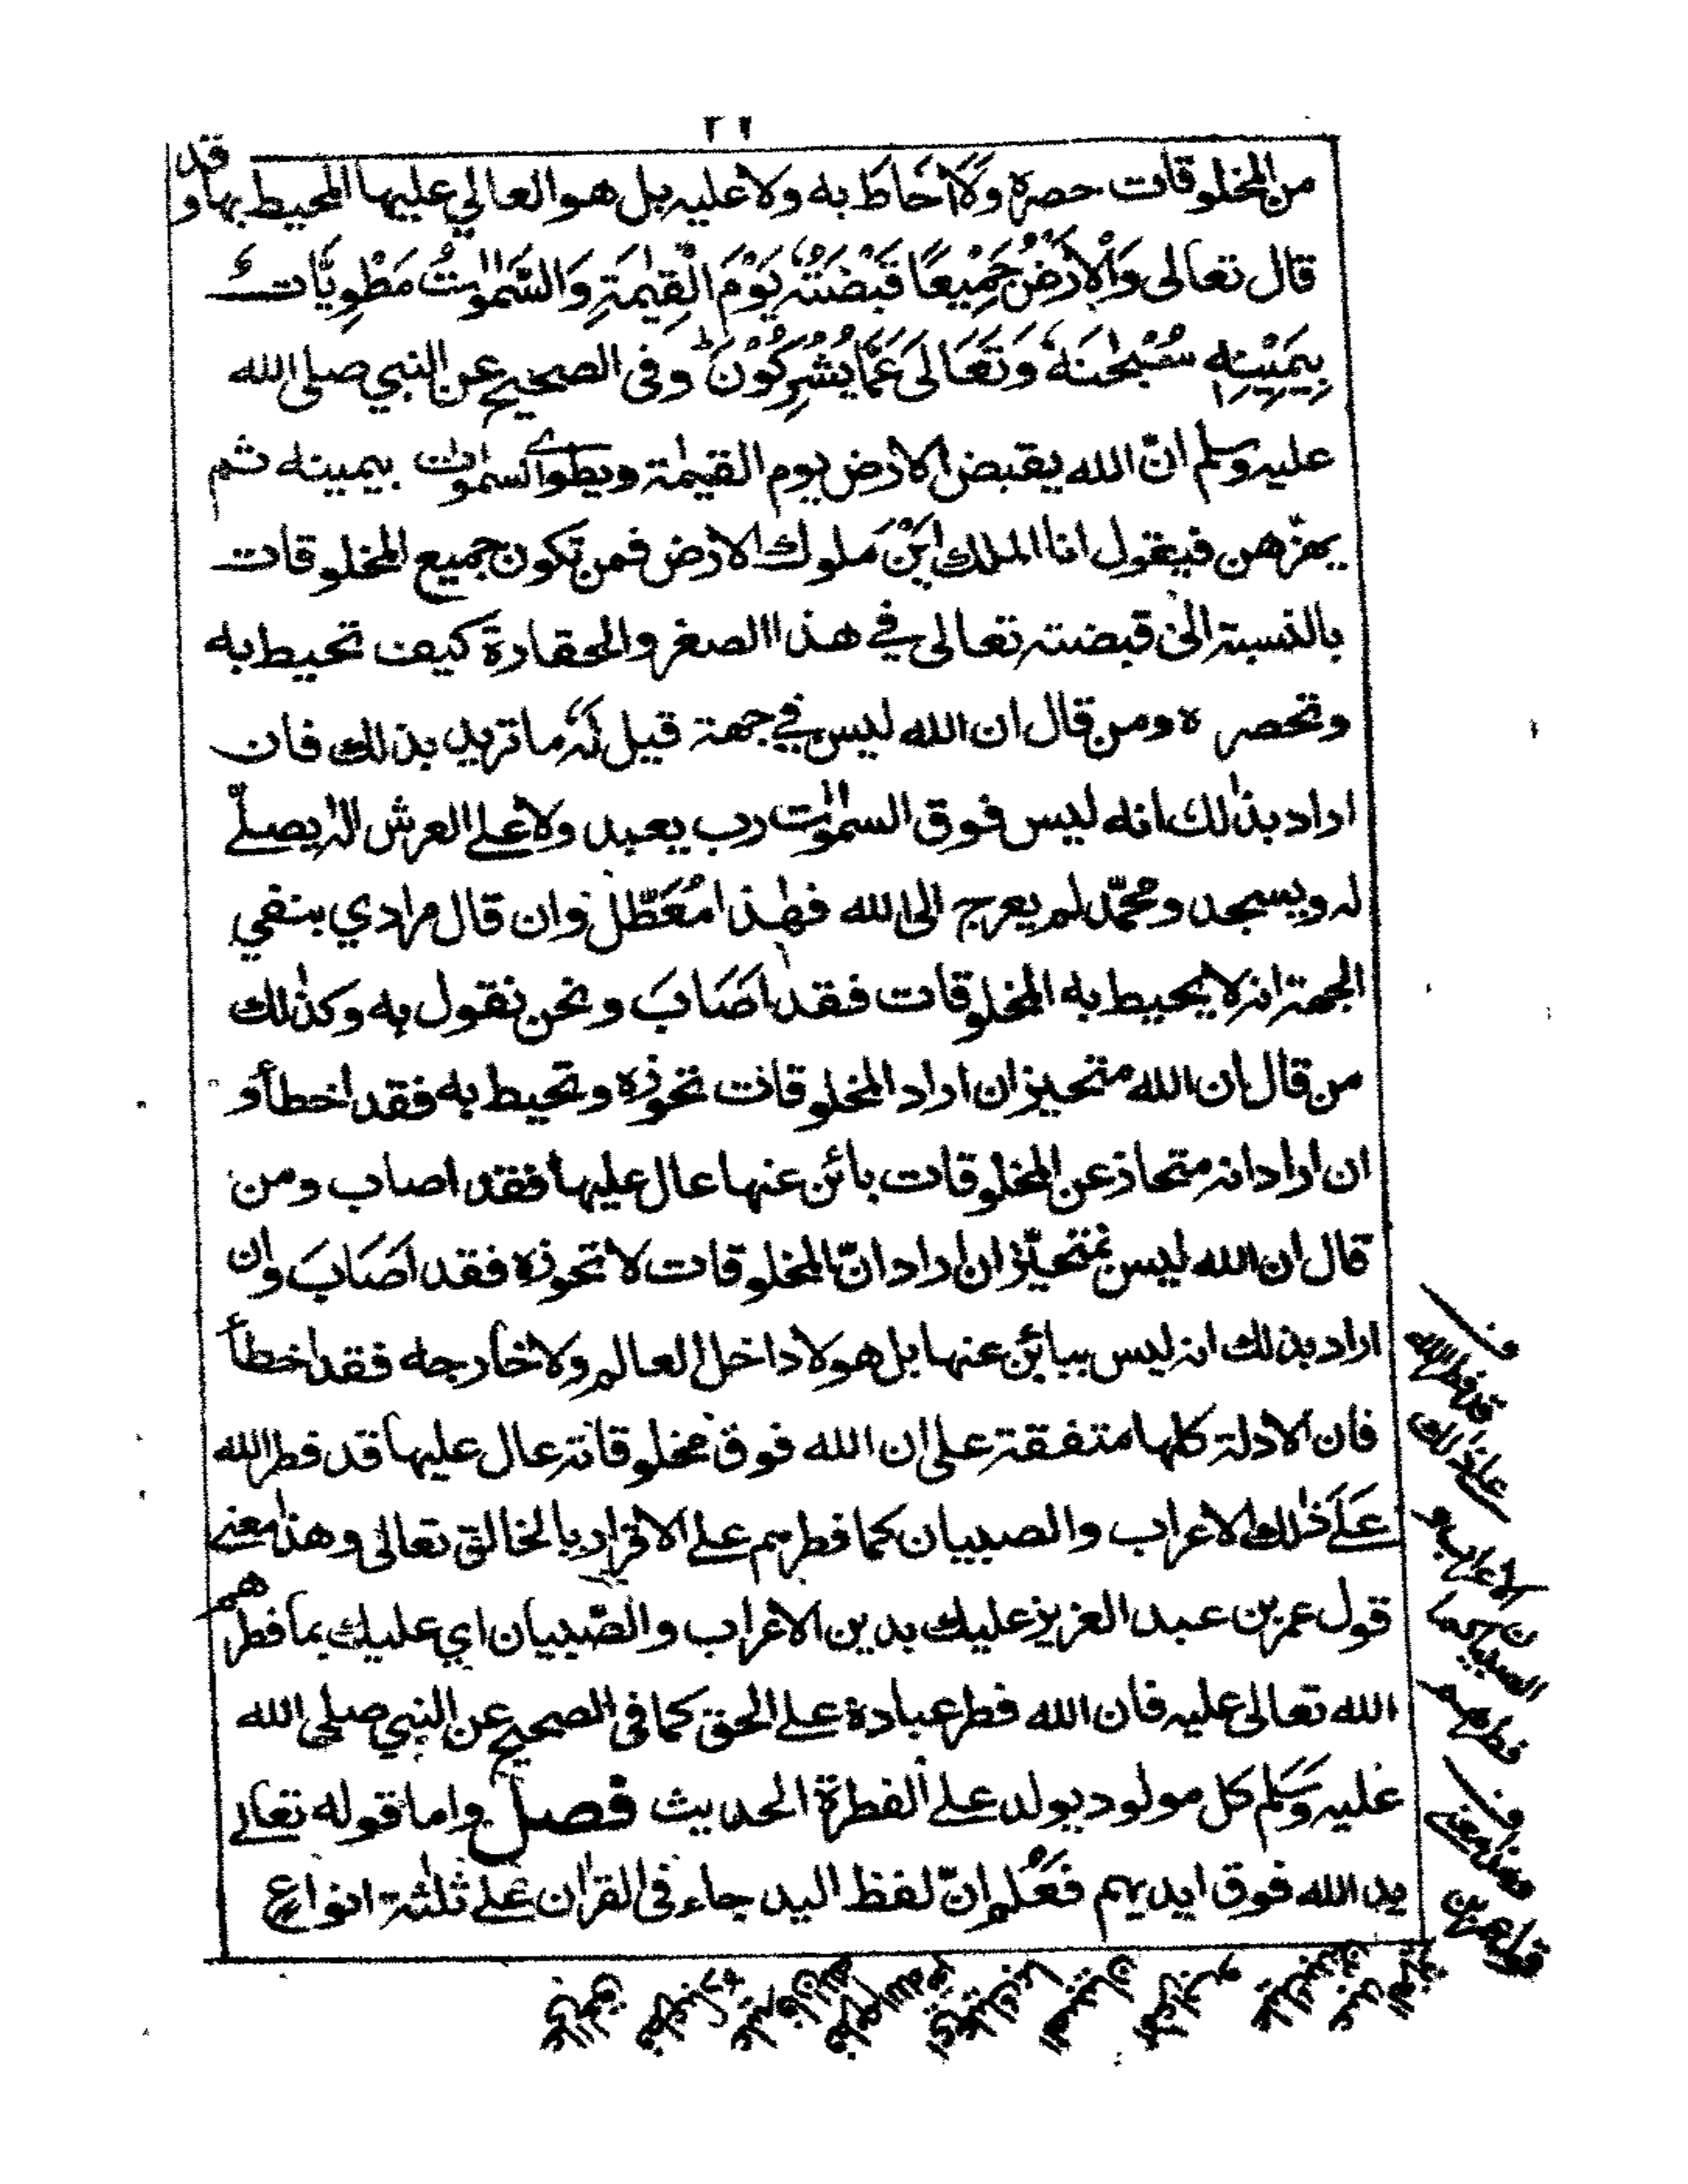 ٢٢
من المخلوقات حصره ولا احاط به ولا عليه بل هو العالي عليها المحيط بها وقد
قال تعالى وَالْاَرْضُ جَمِيْعًا قَبْضَتُهٗ يَوْمَ الْقِيٰمَةِ وَالسَّمٰوٰتُ مَطْوِيّٰات
بِيَمِيْنِهٖ سُبْحٰنَهٗ وَتَعَالَى عَمَّا يُشْرِكُوْنَ وفى الصحيح عن النبي صلى الله
عليه وسلم انّ الله يقبض الارض يوم القيمٰة ويطوى السموات بيمينه ثم
يهزّهن فيقول انا الملك اَيْنَ مَلوك الارض فمن تكون جميع المخلوقات
بالنسبة الى قبضته تعالى في هذا الصغر والحقارة كيف تحيط به
وتحصره ومن قال ان الله ليس في جهة قيل لَهُ ما تريد بذالك فان
اراد بذٰلك انه ليس فوق السمٰوٰت رب يعبد ولا على العرش الٰه يصلّے
له ويسجد ومحمّد لم يعرج الى الله فهٰذا مُعَطّل وان قال مرادي بنفي
الجهة انه لا يحيط به المخلوقات فقد اصَابَ ونحن نقول به وكذٰلك
من قال ان الله متحيز ان اراد المخلوقات تحوزه وتحيط به فقد اخطأ و
ان اراد انه متحاز عن المخلوقات بائن عنها عال عليها فقد اصاب ومن
قال ان الله ليس بمتحيّز ان اراد انّ المخلوقات لا تحوزه فقد اصَابَ وان
اراد بذلك انه ليس ببائن عنها بل هو لا داخل العالم ولا خارجه فقد اخطأ
فان الادلة كلها متفقة على ان الله فوق مخلوقاته عال عليها قد فطر الله
عَلَے ذٰلك الاعراب والصبيان كما فطرهم على الاقرار بالخالق تعالى وهذا معنے
قول عمر بن عبد العزيز عليك بدين الاعراب والصّبيان اي عليك بما فطرهم
الله تعالى عليه فان الله فطر عباده على الحق كما فى الصحيح عن النبي صلى الله
عليه وسَلم كل مولود يولد على الفطرة الحديث فصل واما قوله تعالى
يد الله فوق ايديهم فَعْلم انّ لفظ اليد جاء فى القرٰان على ثلٰثة انواع
قد فطر الله
على ذلك
الاعراب و
الصبيان كما
فطرهم
وهذا معنے
قول عمر بن